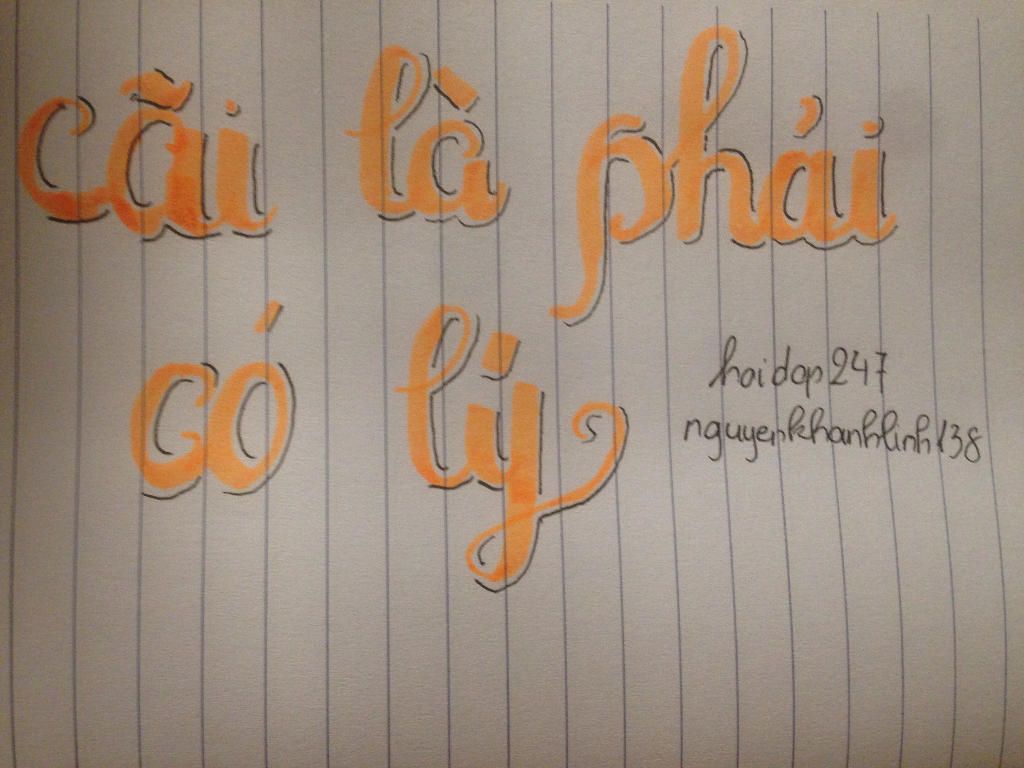 cãi là phải
có lý
hoidap247
nguyenkhanhlinh138